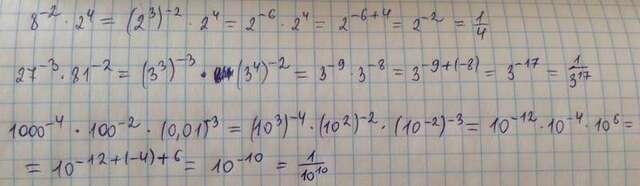 8⁻² · 2⁴ = (2³)⁻² · 2⁴ = 2⁻⁶ · 2⁴ = 2⁻⁶⁺⁴ = 2⁻² = 1/4
27⁻³ · 81⁻² = (3³)⁻³ · (3⁴)⁻² = 3⁻⁹ · 3⁻⁸ = 3⁻⁹⁺⁽⁻⁸⁾ = 3⁻¹⁷ = 1/3¹⁷
1000⁻⁴ · 100⁻² · (0,01)⁻³ = (10³)⁻⁴ · (10²)⁻² · (10⁻²)⁻³ = 10⁻¹² · 10⁻⁴ · 10⁶ =
= 10⁻¹²⁺⁽⁻⁴⁾⁺⁶ = 10⁻¹⁰ = 1/10¹⁰